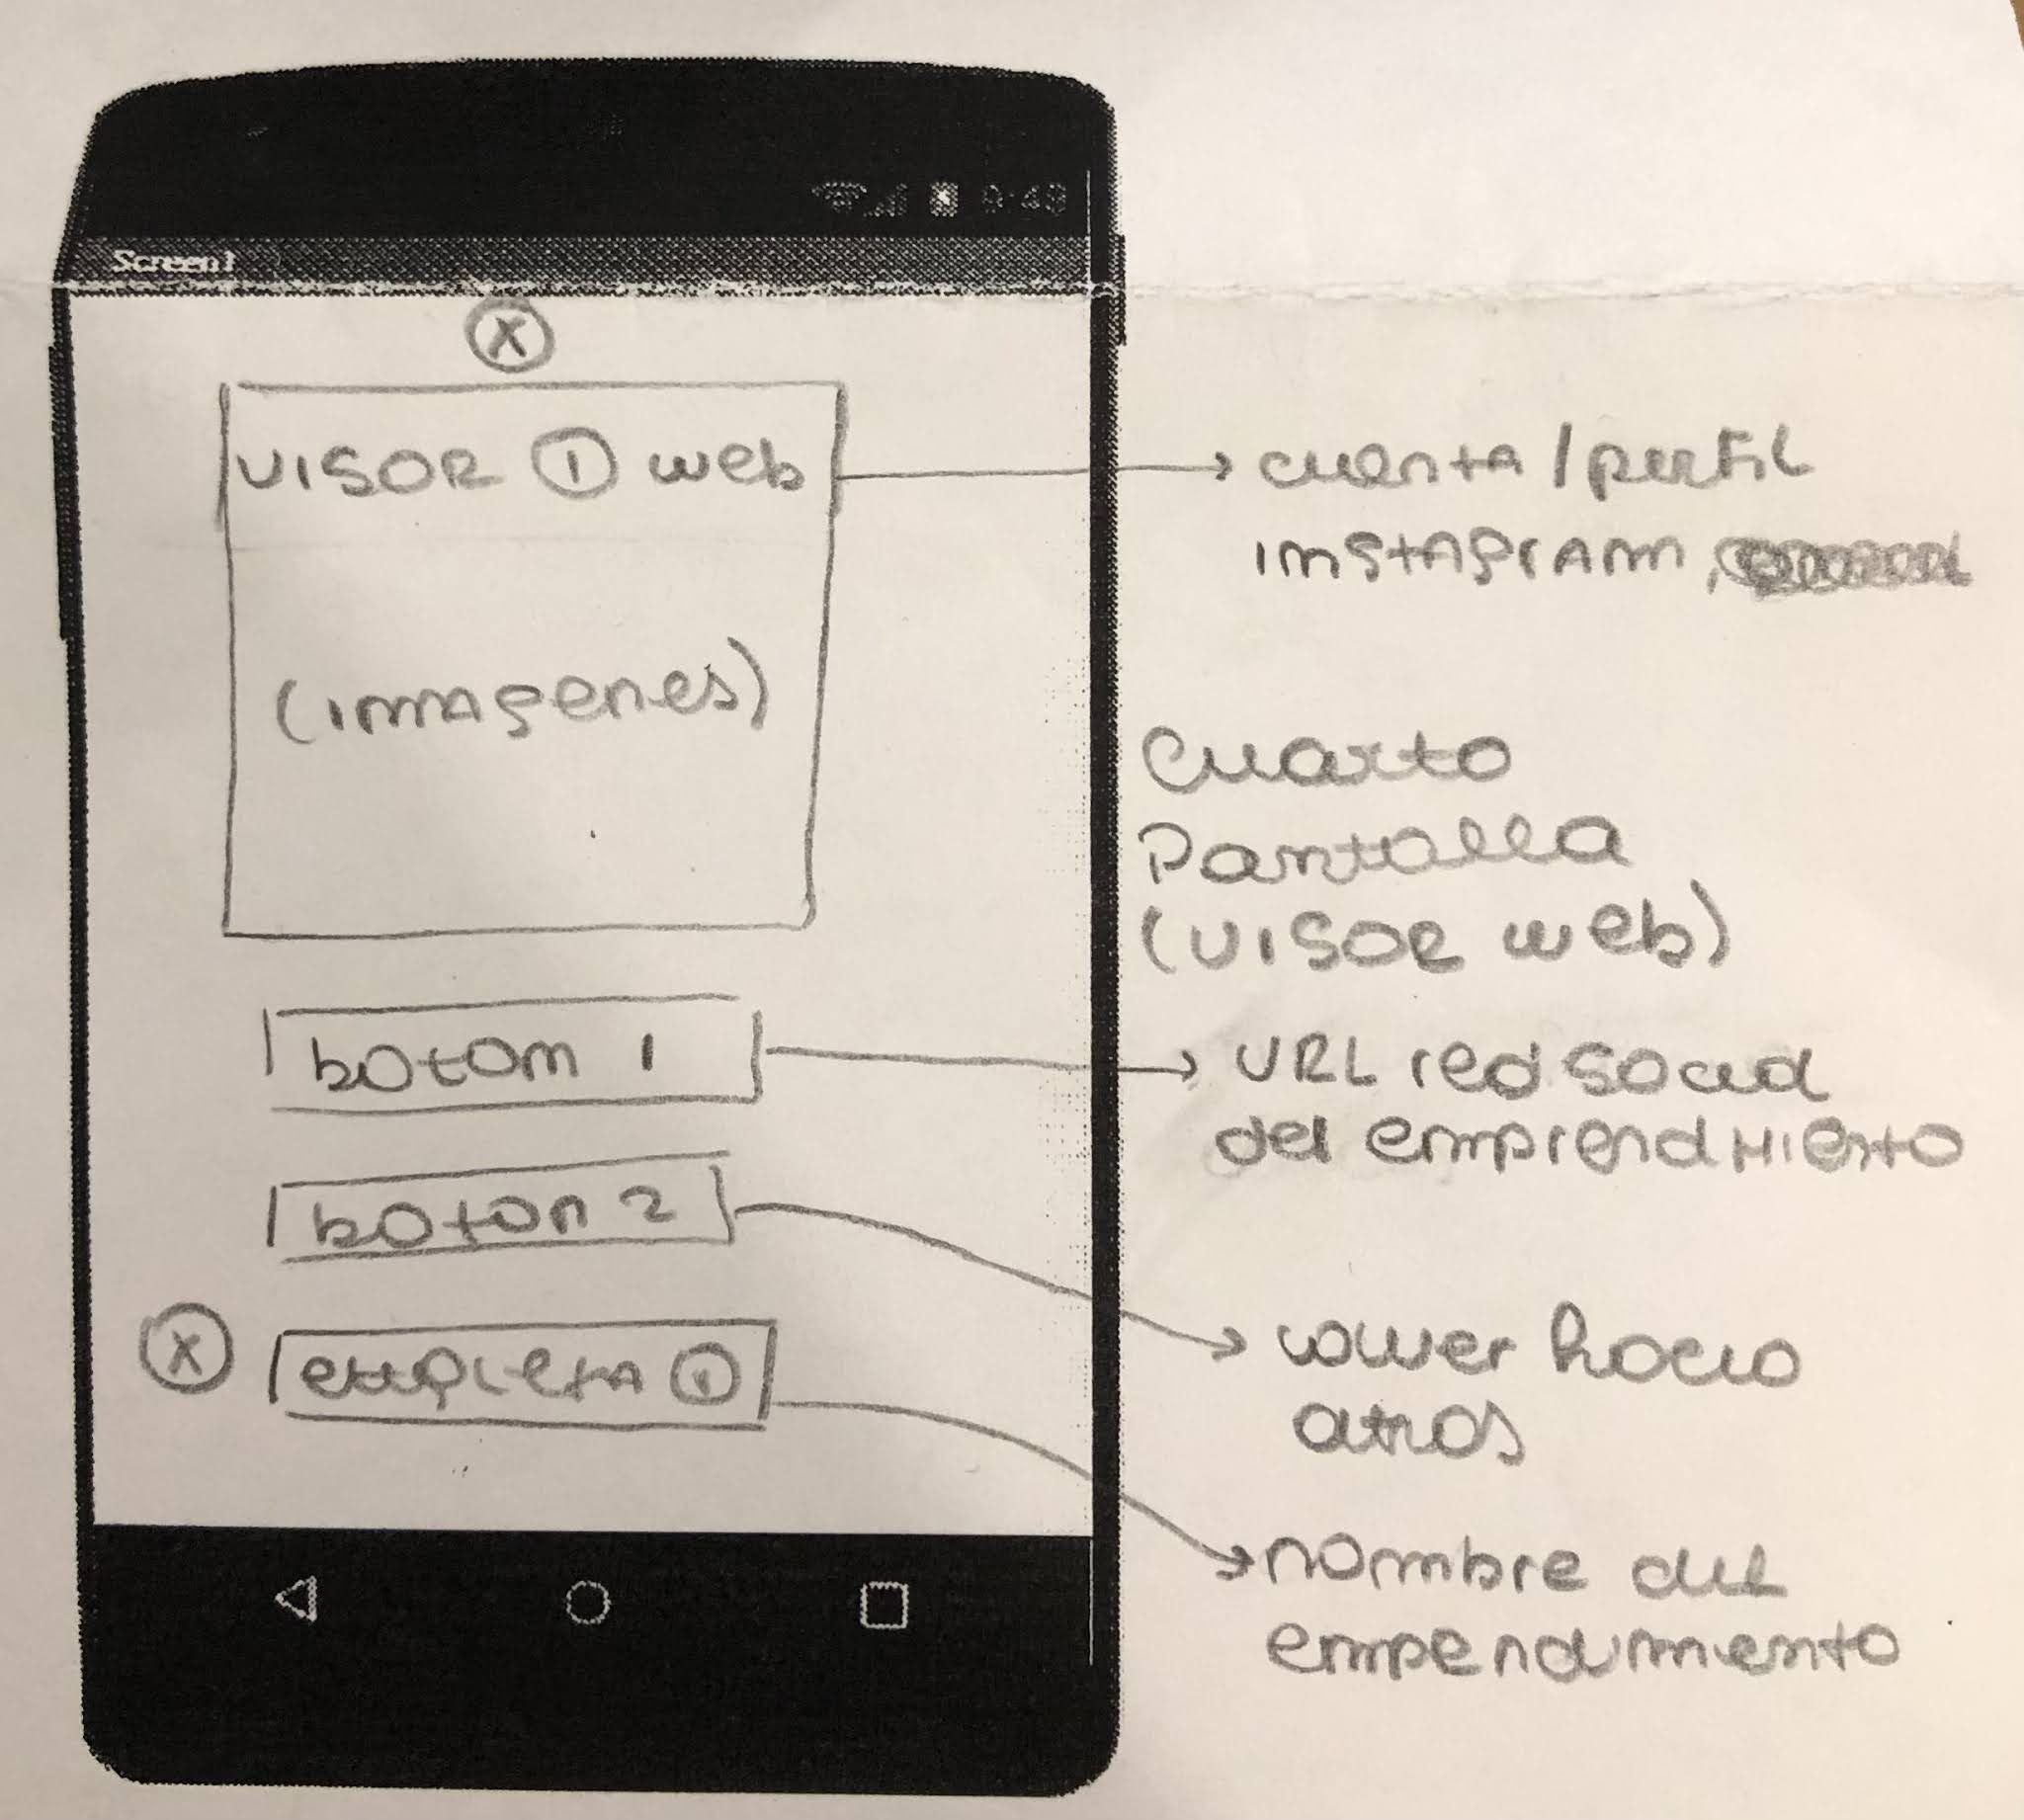 9:48
Screen1
X
VISOR 1 web
(imagenes)
boton 1
boton 2
X etiqueta 1
cuenta / perfil
instagram,
Cuarto
Pantalla
(VISOR web)
URL red social
del emprendimiento
volver hacia
atras
nombre del
empendimiento